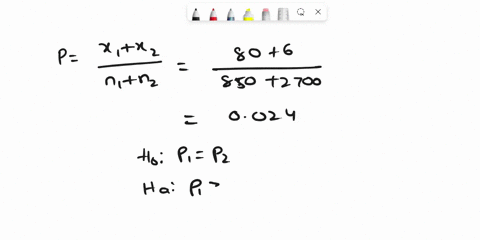 P= x₁+x₂ / n₁+n₂ = 80+6 / 850+2700
= 0.024
H₀: P₁ = P₂
Ha: P₁